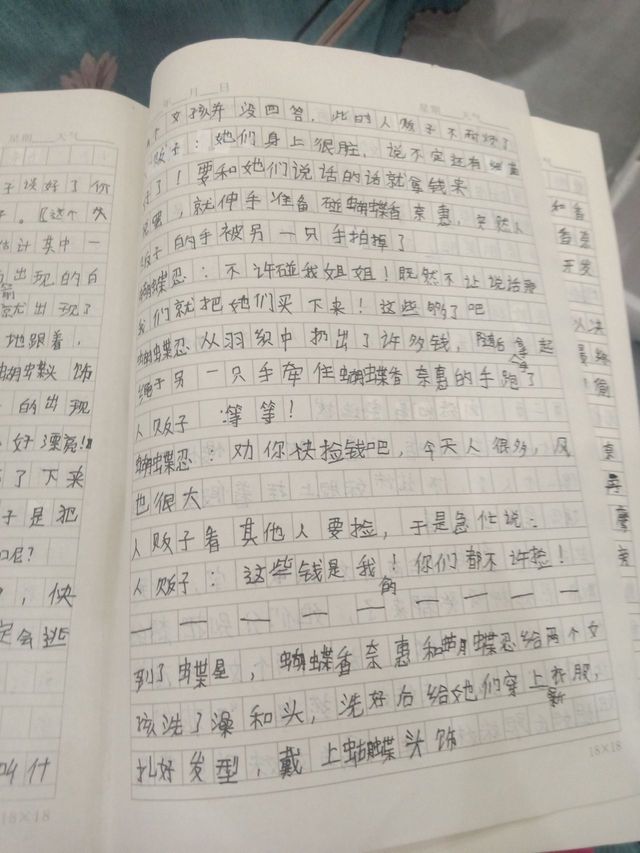 年 月 日
星期 天气
女孩并没回答，此时人贩子不耐烦了
贩子：她们身上很脏，说不定还有细菌
了！要和她们说话的话就拿钱来
，就伸手准备碰蝴蝶香奈惠，突然人
贩子的手被另一只手拍掉了
蝴蝶忍：不许碰我姐姐！既然不让说话
我们就把她们买下来！这些够了吧
蝴蝶忍从羽织中扔出了许多钱，随后拿起
绳子另一只手牵住蝴蝶香奈惠的手跑了
人贩子：等等！
蝴蝶忍：劝你快捡钱吧，今天人很多，风
也很大
人贩子看其他人要捡，于是急忙说：
人贩子：这些钱是我的！你们都不许捡！
— — — — — — — — — — —
到了蝶屋，蝴蝶香奈惠和蝴蝶忍给两个女
孩洗了澡和头，洗好后给她们穿上新衣服，
扎好发型，戴上蝴蝶头饰
18×18
星期 天气
子谈好了价
。《这个失
估计其中一
出现的白
就出现了
地跟着，
蝴蝶头饰
的出现
好漂亮!!
了下来
子是犯
呢？
，快
定会逃
叫什
18×18
天气
和香
香奈
开发
以决
最终